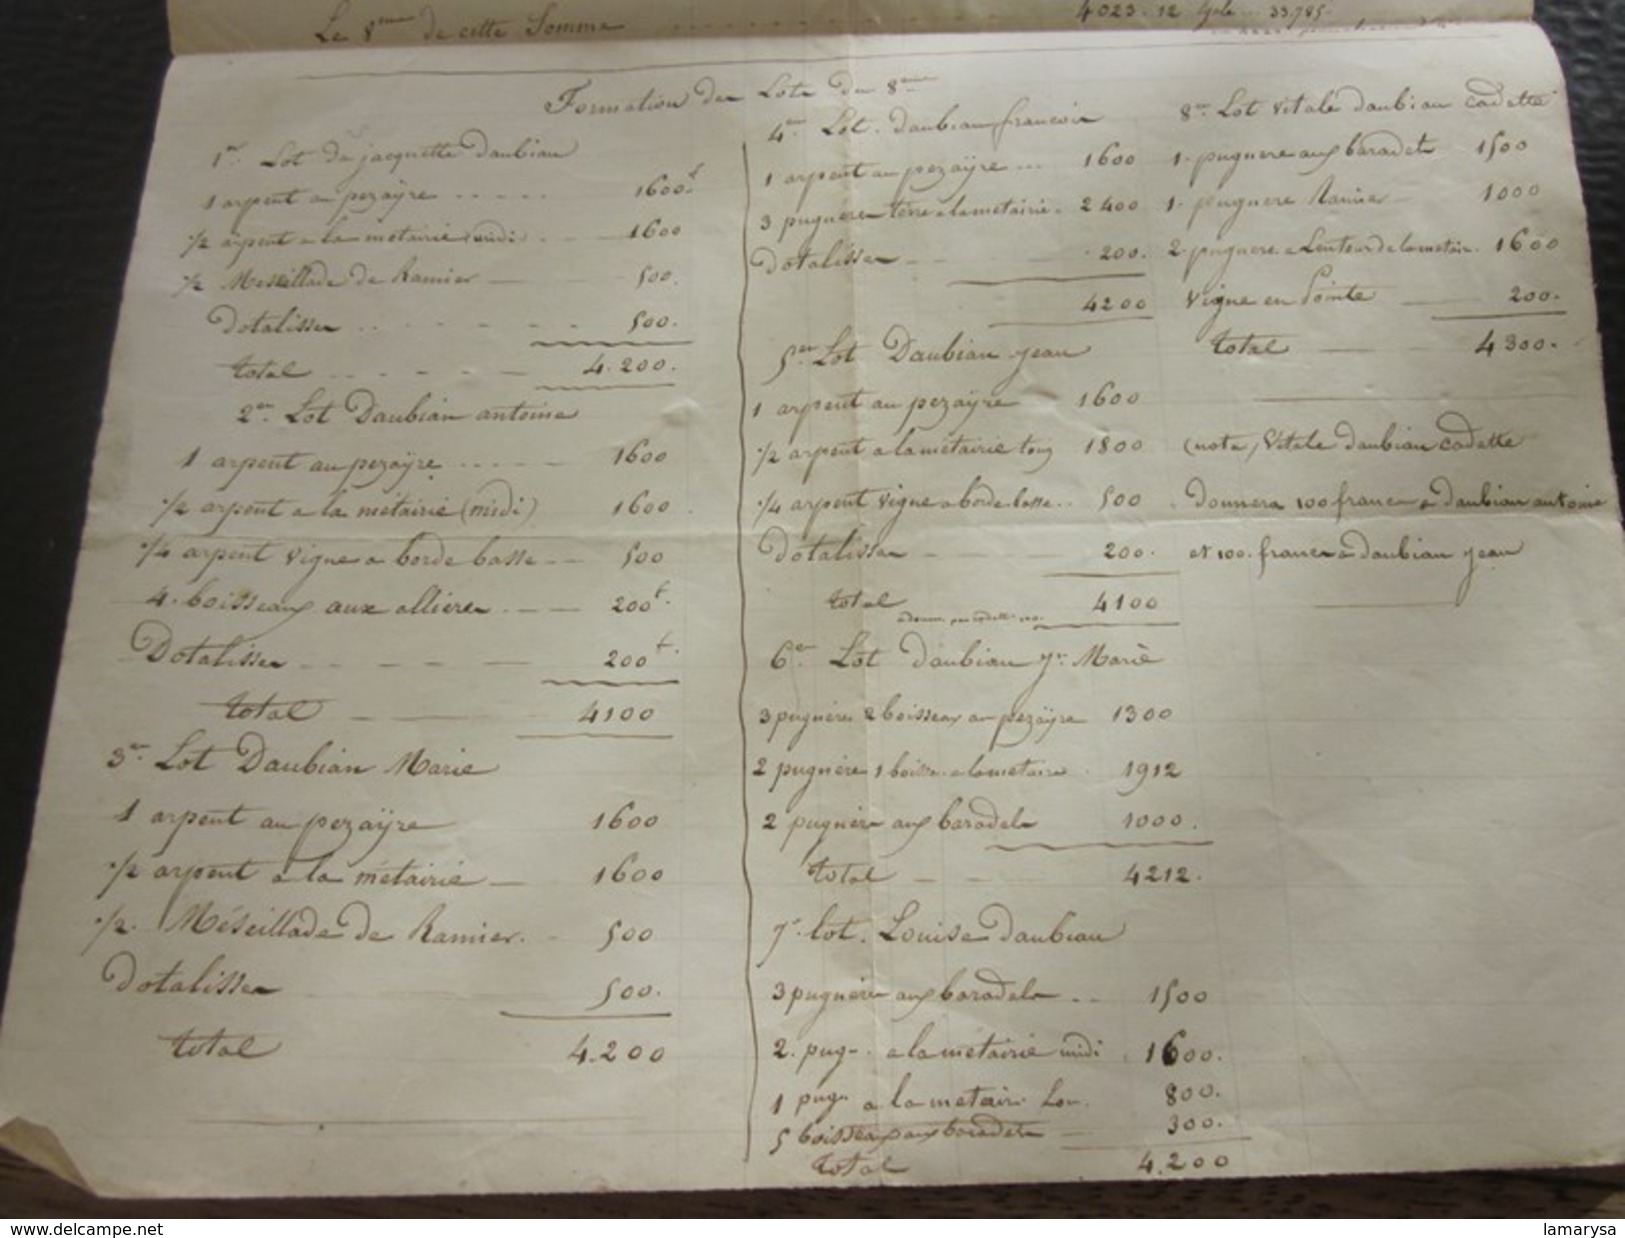 Le 8me de cette Somme 4023.12 33.785.
Formation des Lots du 8eme
1er. Lot de jacquette Daubian
1 arpent au pezaÿre 1600f
1/2 arpent a la metairie (midi) 1600
1/2 Meseillade de Ramier 500.
Dotalisses 500.
total 4.200.
2em Lot Daubian antoine
1 arpent au pezaÿre 1600
1/2 arpent a la métairie (midi) 1600
1/4 arpent vigne a borde basse 500
4. boisseaux aux ollieres 200f.
Dotalisses 200f.
total 4100
3em Lot Daubian Marie
1 arpent au pezaÿre 1600
1/2 arpent a la métairie 1600
1/2. Méseillade de Ramier. 500
Dotalisses 500.
total 4.200
4em Lot. Daubian francois
1 arpent au pezaÿre ... 1600
3 pugneres terre a la metairie. 2400
Dotalisses 200.
4200
5em Lot Daubian jean
1 arpent au pezaÿre 1600
1/2 arpent a la métairie 1800
1/4 arpent vigne a borde basse.. 500
Dotalisses 200.
total 4100
6em Lot Daubian jn Marie
3 pugnéres 2 boisseaux au pezaÿre 1300
2 pugnéres 1 boisse. a la metairie 1912
2 pugnéres aux baradels 1000.
total 4212.
7e. lot. Louise Daubian
3 pugnéres aux baradels .. 1500
2. pug. a la métairie midi 1600.
1 pugn a la metairi. 800.
5 boisseaux aux baradels 300.
total 4.200
8em Lot Vitale Daubian Cadette
1. pugnere aux baradels 1500
1. pugnere Ramier 1000
2. pugnere a Lentour de la metair. 1600
Vigne en Pointe 200.
total 4300.
(nota) Vitale Daubian Cadette
Donnera 100 francs a Daubian antoine
et 100. francs a Daubian jean
© delcampe.net lamarysa